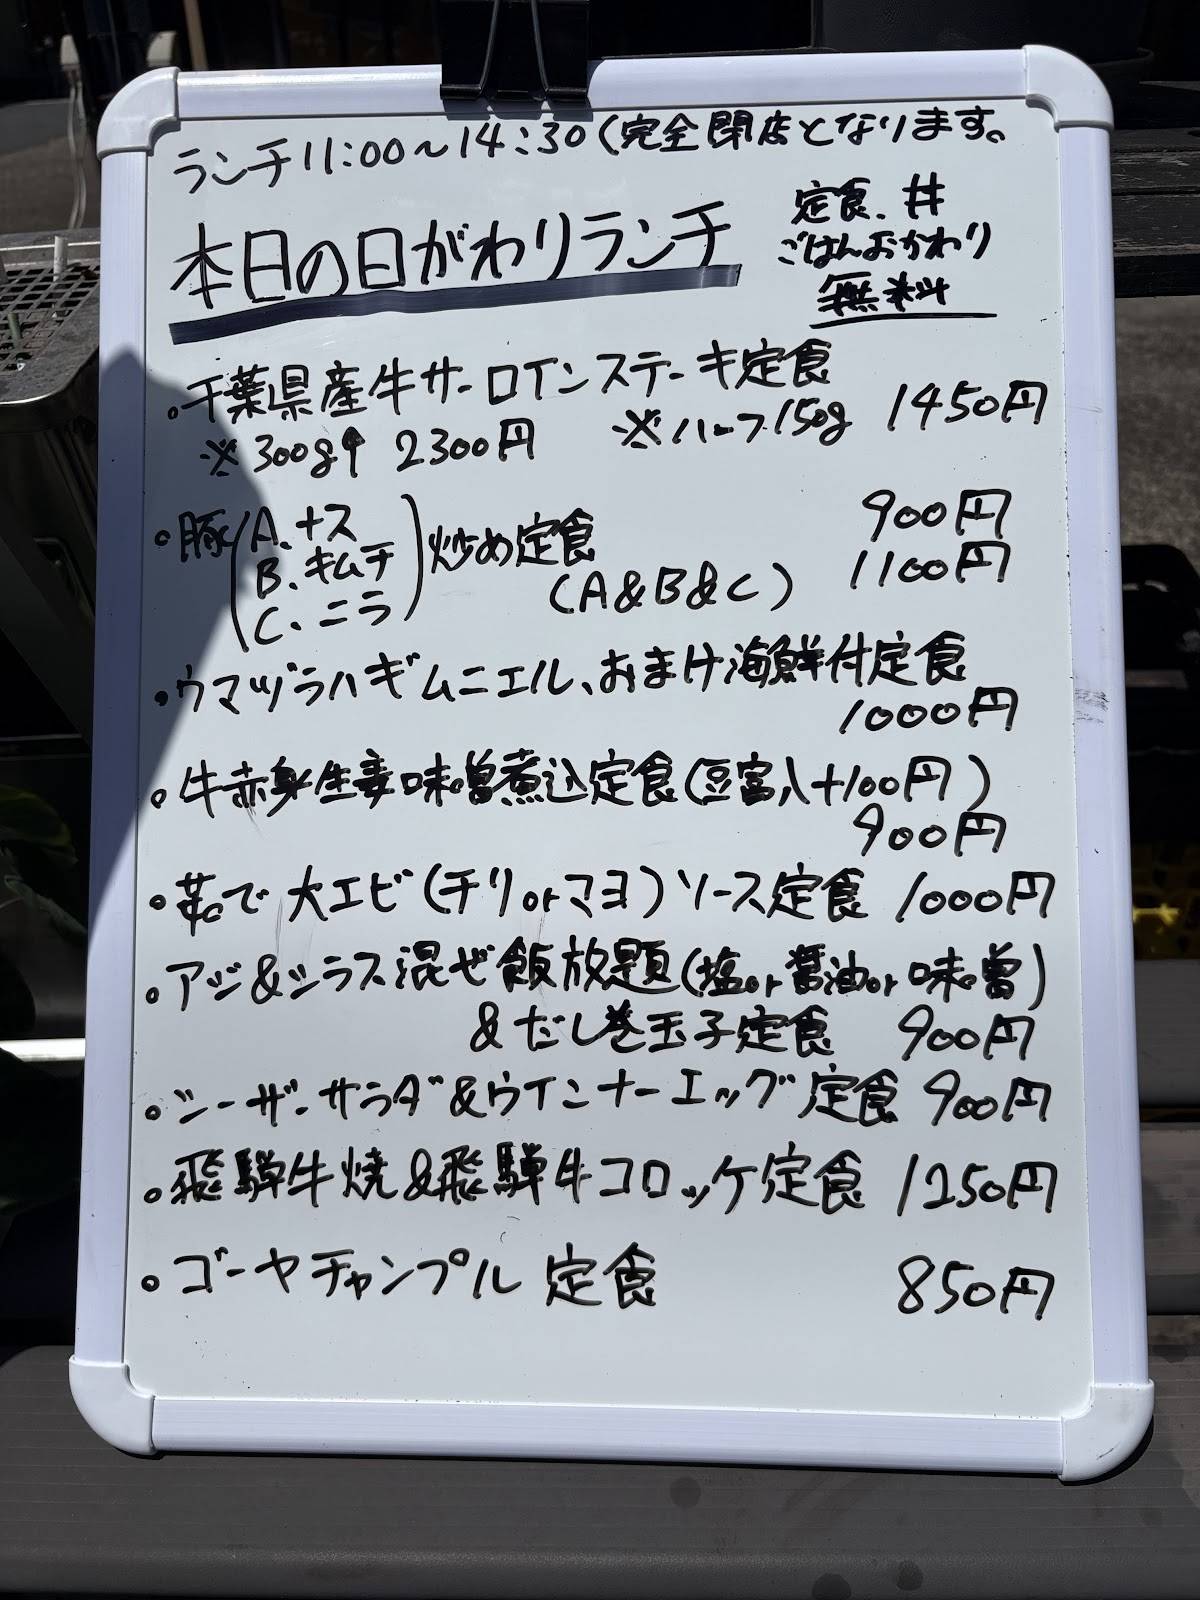 ランチ11:00〜14:30(完全閉店となります。
定食、丼
ごはんおかわり
無料
本日の日がわりランチ
。千葉県産牛サーロインステーキ定食
※300g↑ 2300円 ※ハーフ150g 1450円
。豚(A、ナス B、キムチ C、ニラ)炒め定食 900円
(A&B&C) 1100円
。ウマヅラハギムニエル、おまけ海鮮付定食
1000円
。牛赤身生姜味噌煮込定食(豆富入+100円)
900円
。茹で大エビ(チリorマヨ)ソース定食 1000円
。アジ&シラス混ぜ飯放題(塩or醤油or味噌)
&だし巻玉子定食 900円
。シーザーサラダ&ウインナーエッグ定食 900円
。飛騨牛焼&飛騨牛コロッケ定食 1250円
。ゴーヤチャンプル 定食 850円